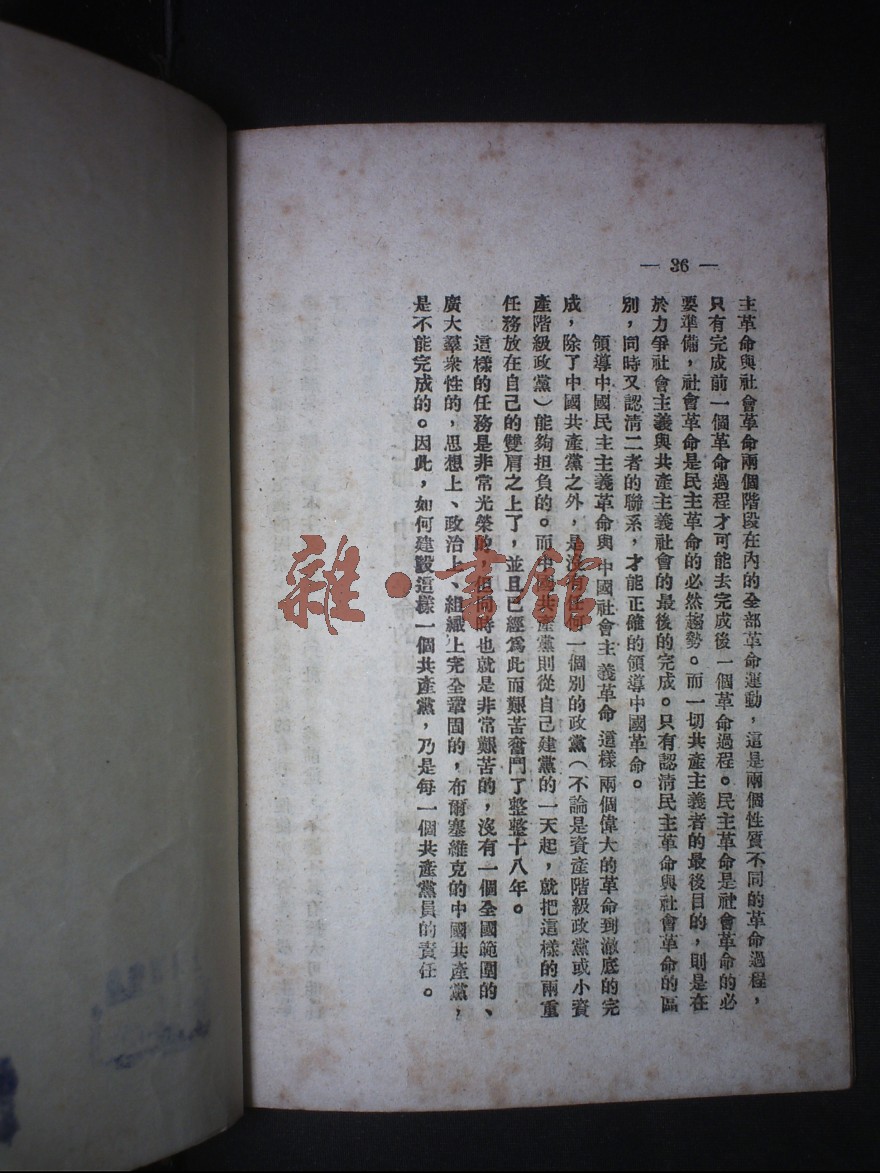 — 36 —
主革命與社會革命兩個階段在內的全部革命運動，這是兩個性質不同的革命過程，
只有完成前一個革命過程才可能去完成後一個革命過程。民主革命是社會革命的必
要準備，社會革命是民主革命的必然趨勢。而一切共產主義者的最後目的，則是在
於力爭社會主義與共產主義社會的最後的完成。只有認清民主革命與社會革命的區
別，同時又認清二者的聯系，才能正確的領導中國革命。
領導中國民主主義革命與中國社會主義革命這樣兩個偉大的革命到澈底的完
成，除了中國共產黨之外，是沒有任何一個別的政黨（不論是資產階級政黨或小資
產階級政黨）能夠担負的。而中國共產黨則從自己建黨的一天起，就把這樣的兩重
任務放在自己的雙肩之上了，並且已經爲此而艱苦奮鬥了整整十八年。
這樣的任務是非常光榮的，但同時也就是非常艱苦的，沒有一個全國範圍的、
廣大羣衆性的，思想上、政治上、組織上完全鞏固的，布爾塞維克的中國共產黨，
是不能完成的。因此，如何建設這樣一個共產黨，乃是每一個共產黨員的責任。
雜·書館